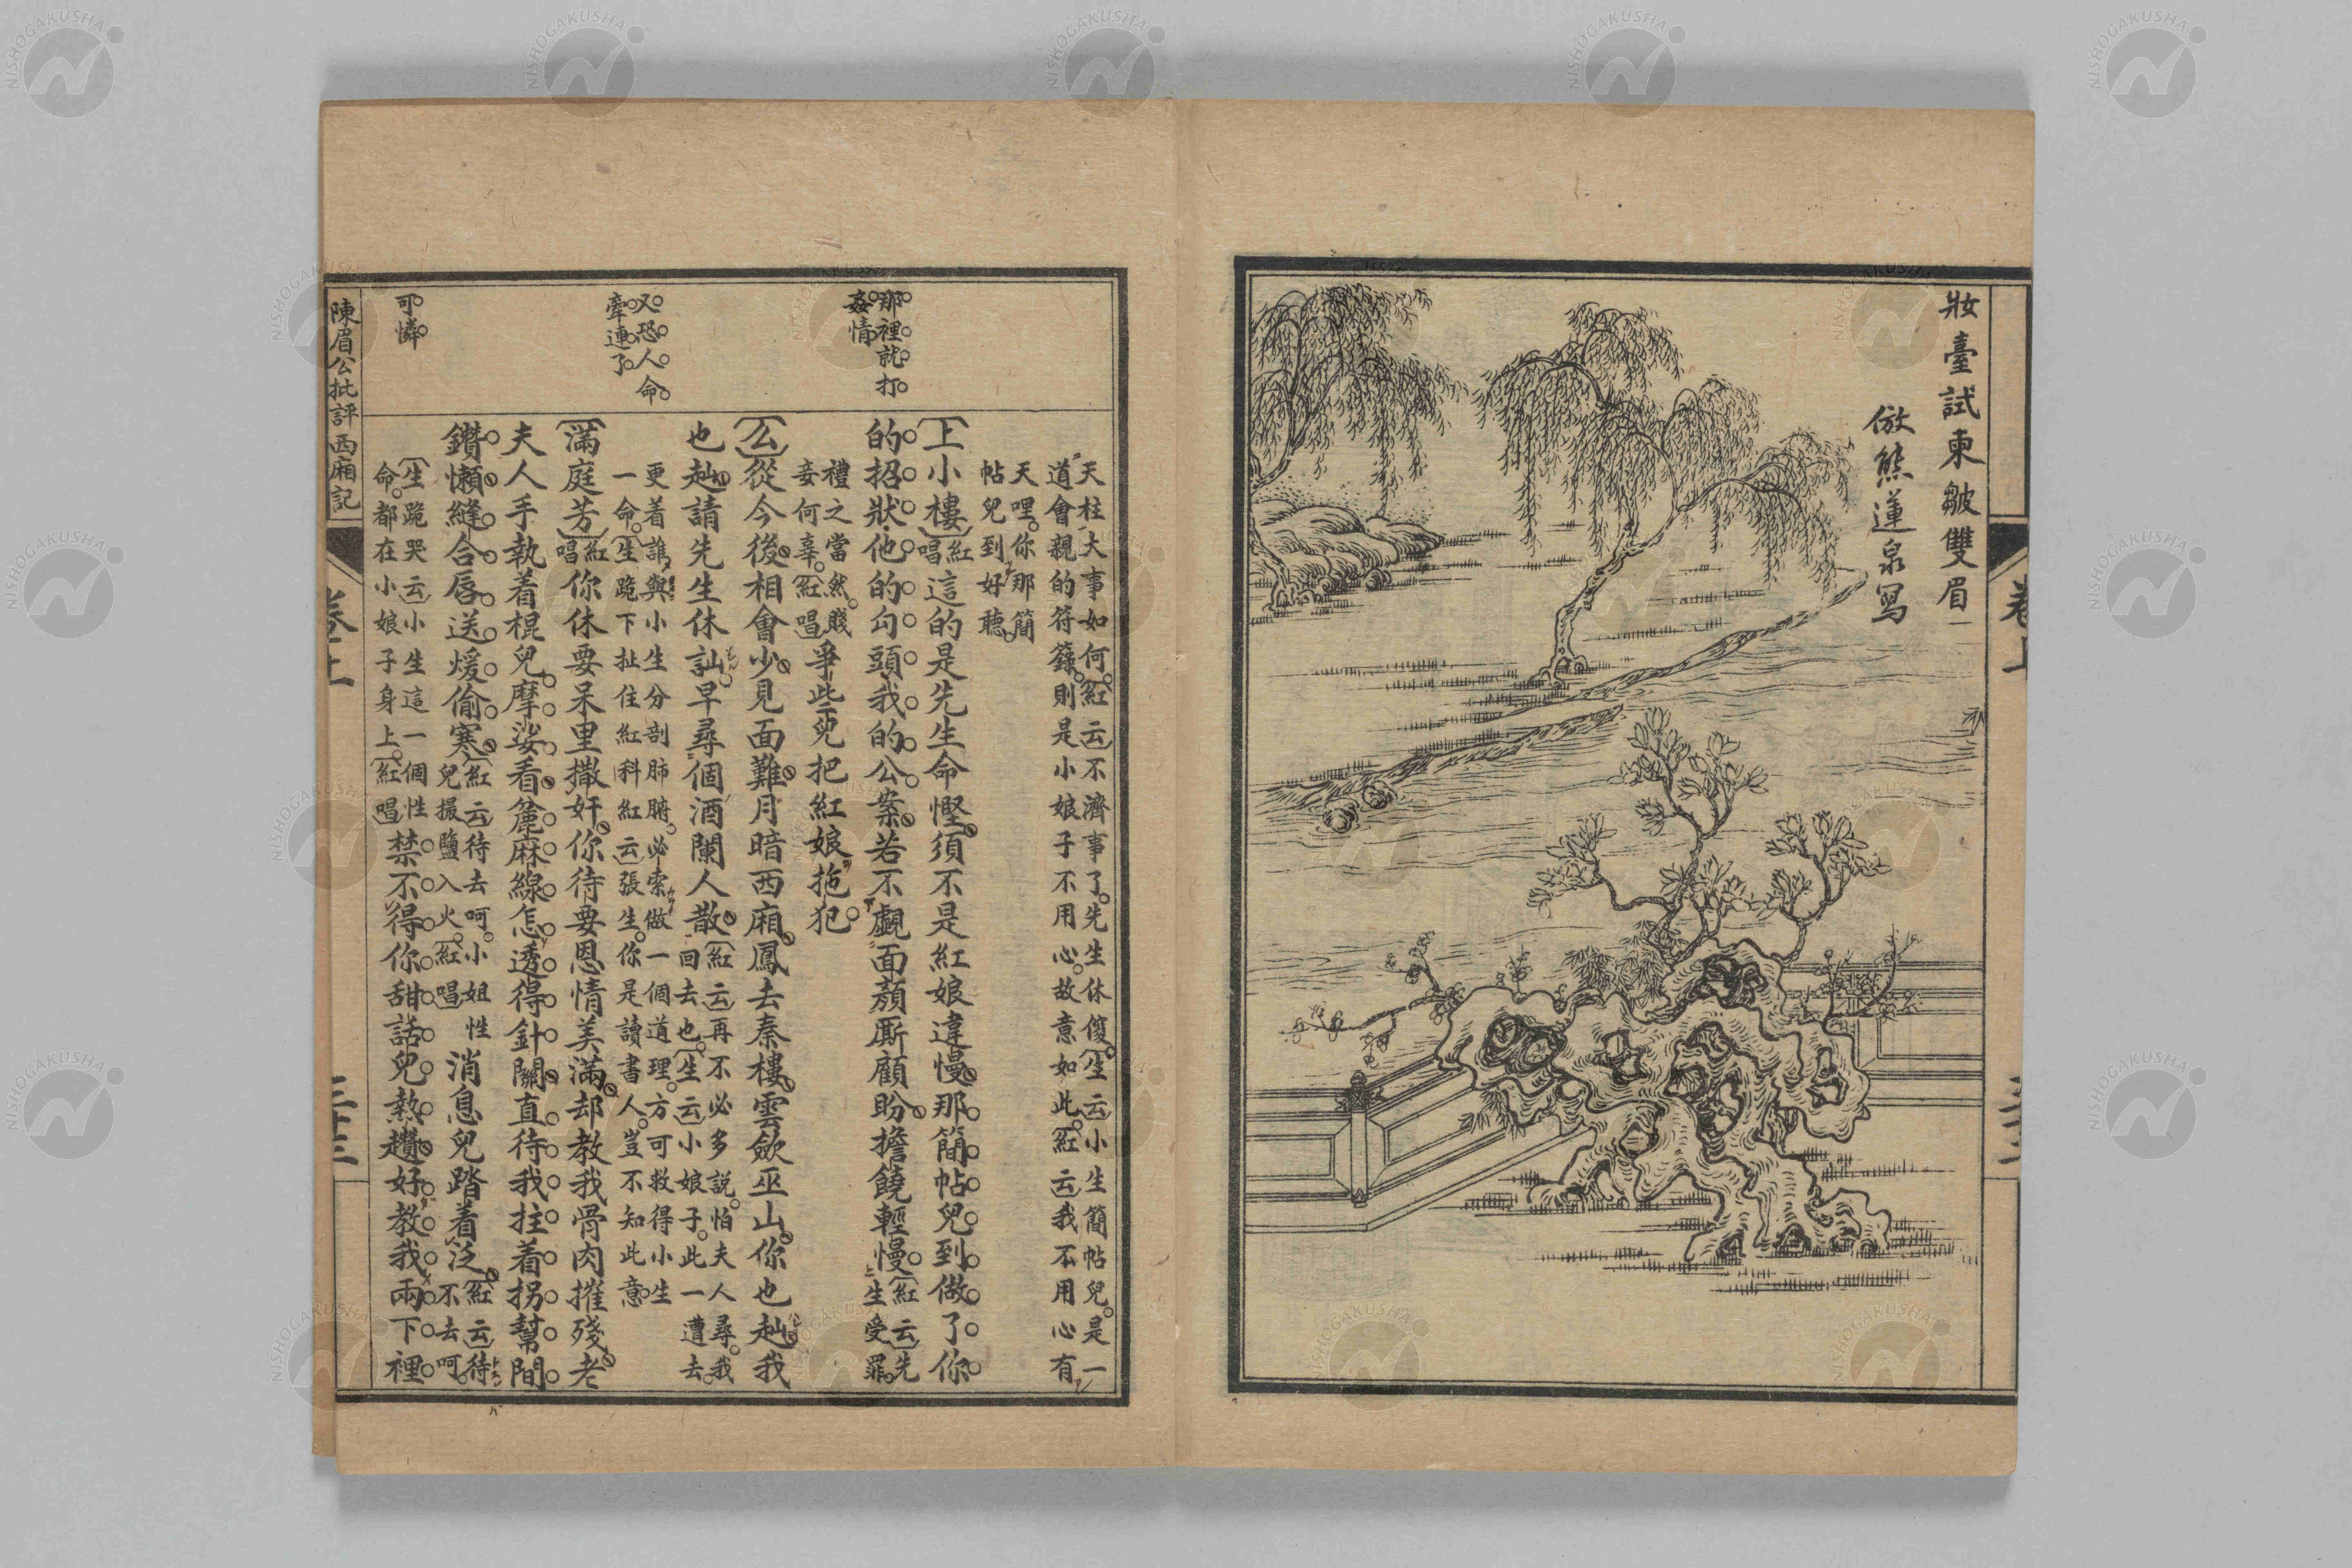 妝臺試東皺雙眉
倣熊蓮泉寫
卷上
那裡就打
姦情
又恐人命
牽連了
可憐
天柱大事如何〔紅云〕不濟事了先生休傻〔生云〕小生簡帖兒是一
道會親的符籙則是小娘子不用心故意如此〔紅云〕我不用心有
天哩你那簡
帖兒到好聽
〔上小樓〕〔紅唱〕這的是先生命慳須不是紅娘違慢那簡帖兒到做了你
的招狀他的勾頭我的公案若不覷面顏厮顧盼擔饒輕慢〔紅云〕先生受罪
禮之當然賤妾何辜〔紅唱〕爭些兒把紅娘拖犯
〔幺〕從今後相會少見面難月暗西廂鳳去秦樓雲歛巫山你也赸我
也赸請先生休訕早尋個酒闌人散〔紅云〕再不必多説怕夫人尋我回去也〔生云〕小娘子此一遭去
更着誰與小生分剖肺腑必索做一個道理方可救得小生
一命〔生跪下扯住紅科紅云〕張生你是讀書人豈不知此意
〔滿庭芳〕〔紅唱〕你休要呆里撒奸你待要恩情美滿却教我骨肉摧殘老
夫人手執着棍兒摩娑看麄麻線怎透得針關直待我拄着拐幫閒
鑽懶縫合唇送煖偷寒〔紅云〕待去呵小姐性兒撮鹽入火〔紅唱〕消息兒踏着泛〔紅云〕待不去呵
〔生跪哭云〕小生這一個性命都在小娘子身上〔紅唱〕禁不得你甜話兒熱趲好教我兩下裡
陳眉公批評西廂記
卷上
三十三